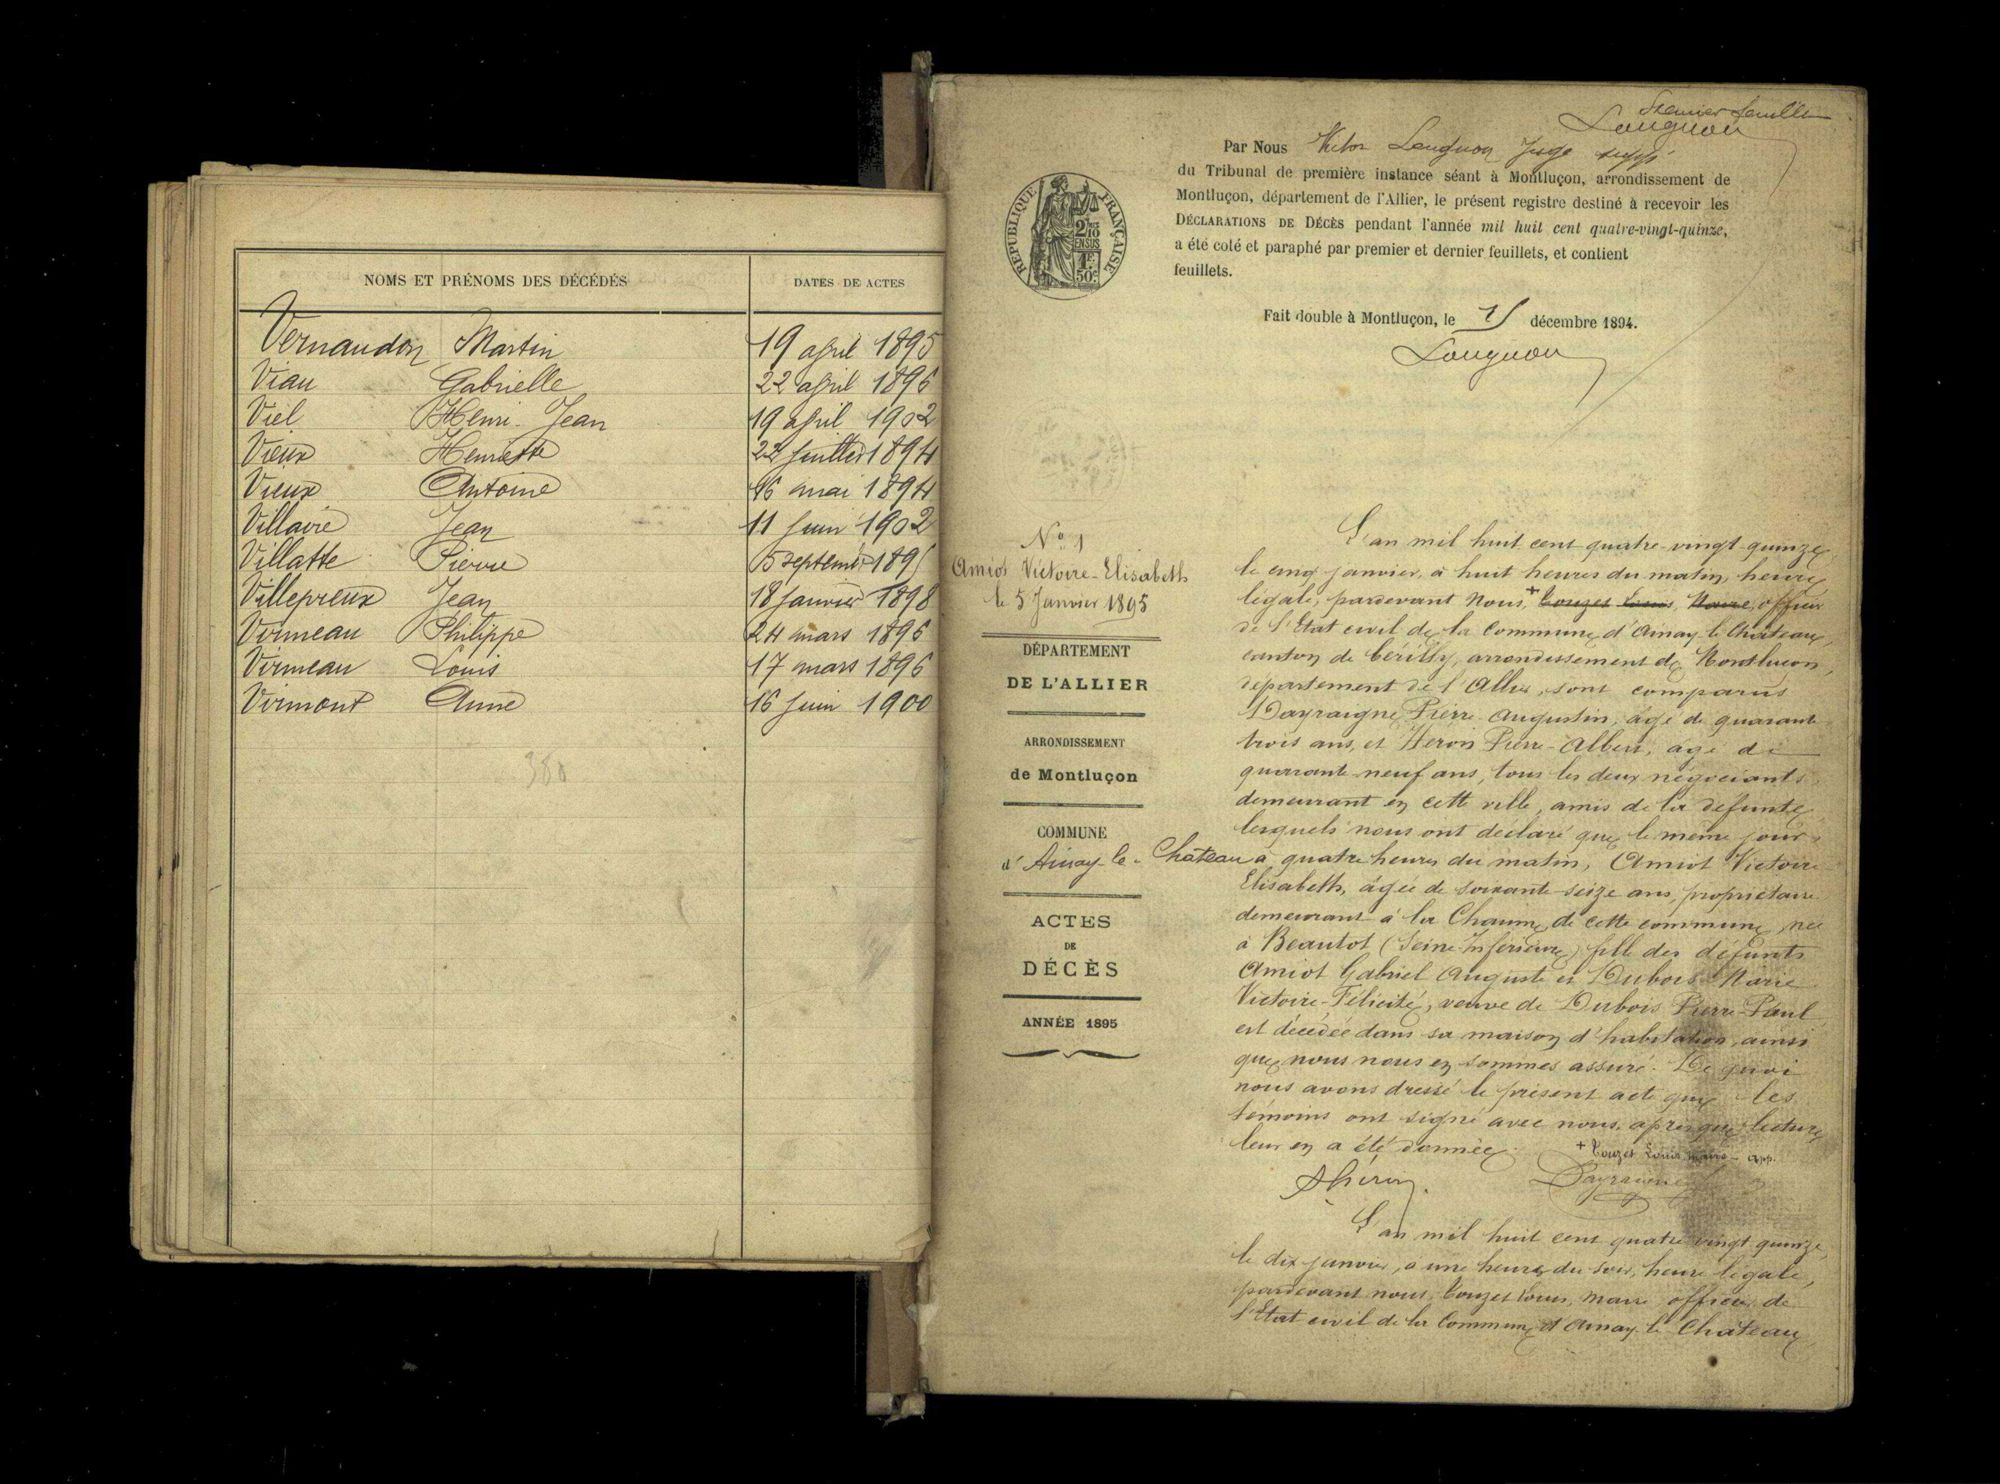 NOMS ET PRÉNOMS DES DÉCÉDÉS
DATES DE ACTES
Vernaudon Martin 19 april 1895
Viau Gabrielle 22 april 1896
Viel Henri Jean 19 april 1902
Vieux Henriette 22 juillet 1894
Vieux Antoine 16 mai 1894
Villavie Jean 11 juin 1902
Villatte Pierre 5 septemb 189
Villepreux Jean 18 janvier 1898
Virmeau Philippe 24 mars 1896
Virmeau Louis 17 mars 1896
Virmont Anne 16 juin 1900
380
Premier feuillet
Longuon
Par Nous Victor Longuon Juge supp
du Tribunal de première instance séant à Montluçon, arrondissement de
Montluçon, département de l'Allier, le présent registre destiné à recevoir les
DÉCLARATIONS DE DÉCÈS pendant l'année mil huit cent quatre-vingt-quinze,
a été coté et paraphé par premier et dernier feuillets, et contient
feuillets.
Fait double à Montluçon, le décembre 1894.
Longuon
RÉPUBLIQUE FRANÇAISE
2/10
EN SUS
1F
50c
N° 1
Amiot Victoire-Elisabeth
le 5 Janvier 1895
DÉPARTEMENT
DE L'ALLIER
ARRONDISSEMENT
de Montluçon
COMMUNE
d'Ainay-le-Château
ACTES
DE
DÉCÈS
ANNÉE 1895
L'an mil huit cent quatre-vingt-quinze,
le cinq janvier, à huit heures du matin, heure
légale, pardevant Nous + Touzet Louis, Maire, officier
de l'Etat civil de la Commune d'Ainay-le-Château,
canton de Cérilly, arrondissement de Montluçon,
département de l'Allier, sont comparus
Dayraigne Pierre-Augustin, âgé de quarante
trois ans, et Héron Pierre-Albert, âgé de
quarante-neuf ans, tous les deux négociants,
demeurant en cette ville, amis de la défunte,
lesquels nous ont déclaré que le même jour,
à quatre heures du matin, Amiot Victoire
Elisabeth, âgée de soixante-seize ans, propriétaire
demeurant à la Chaume de cette commune, née
à Beautot (Seine-Inférieure) fille des défunts
Amiot Gabriel Auguste et Dubois Marie
Victoire-Félicité, veuve de Dubois Pierre-Paul
est décédée dans sa maison d'habitation, ainsi
que nous nous en sommes assuré. De quoi
nous avons dressé le présent acte que les
témoins ont signé avec nous, après que lecture
leur en a été donnée.
+ Touzet Louis, maire - app.
Ahéron
Dayraigne
L'an mil huit cent quatre vingt quinze,
le dix janvier, à une heure du soir, heure légale,
pardevant nous, Touzet Louis, Maire officier de
l'Etat civil de la Commune d'Ainay-le-Château